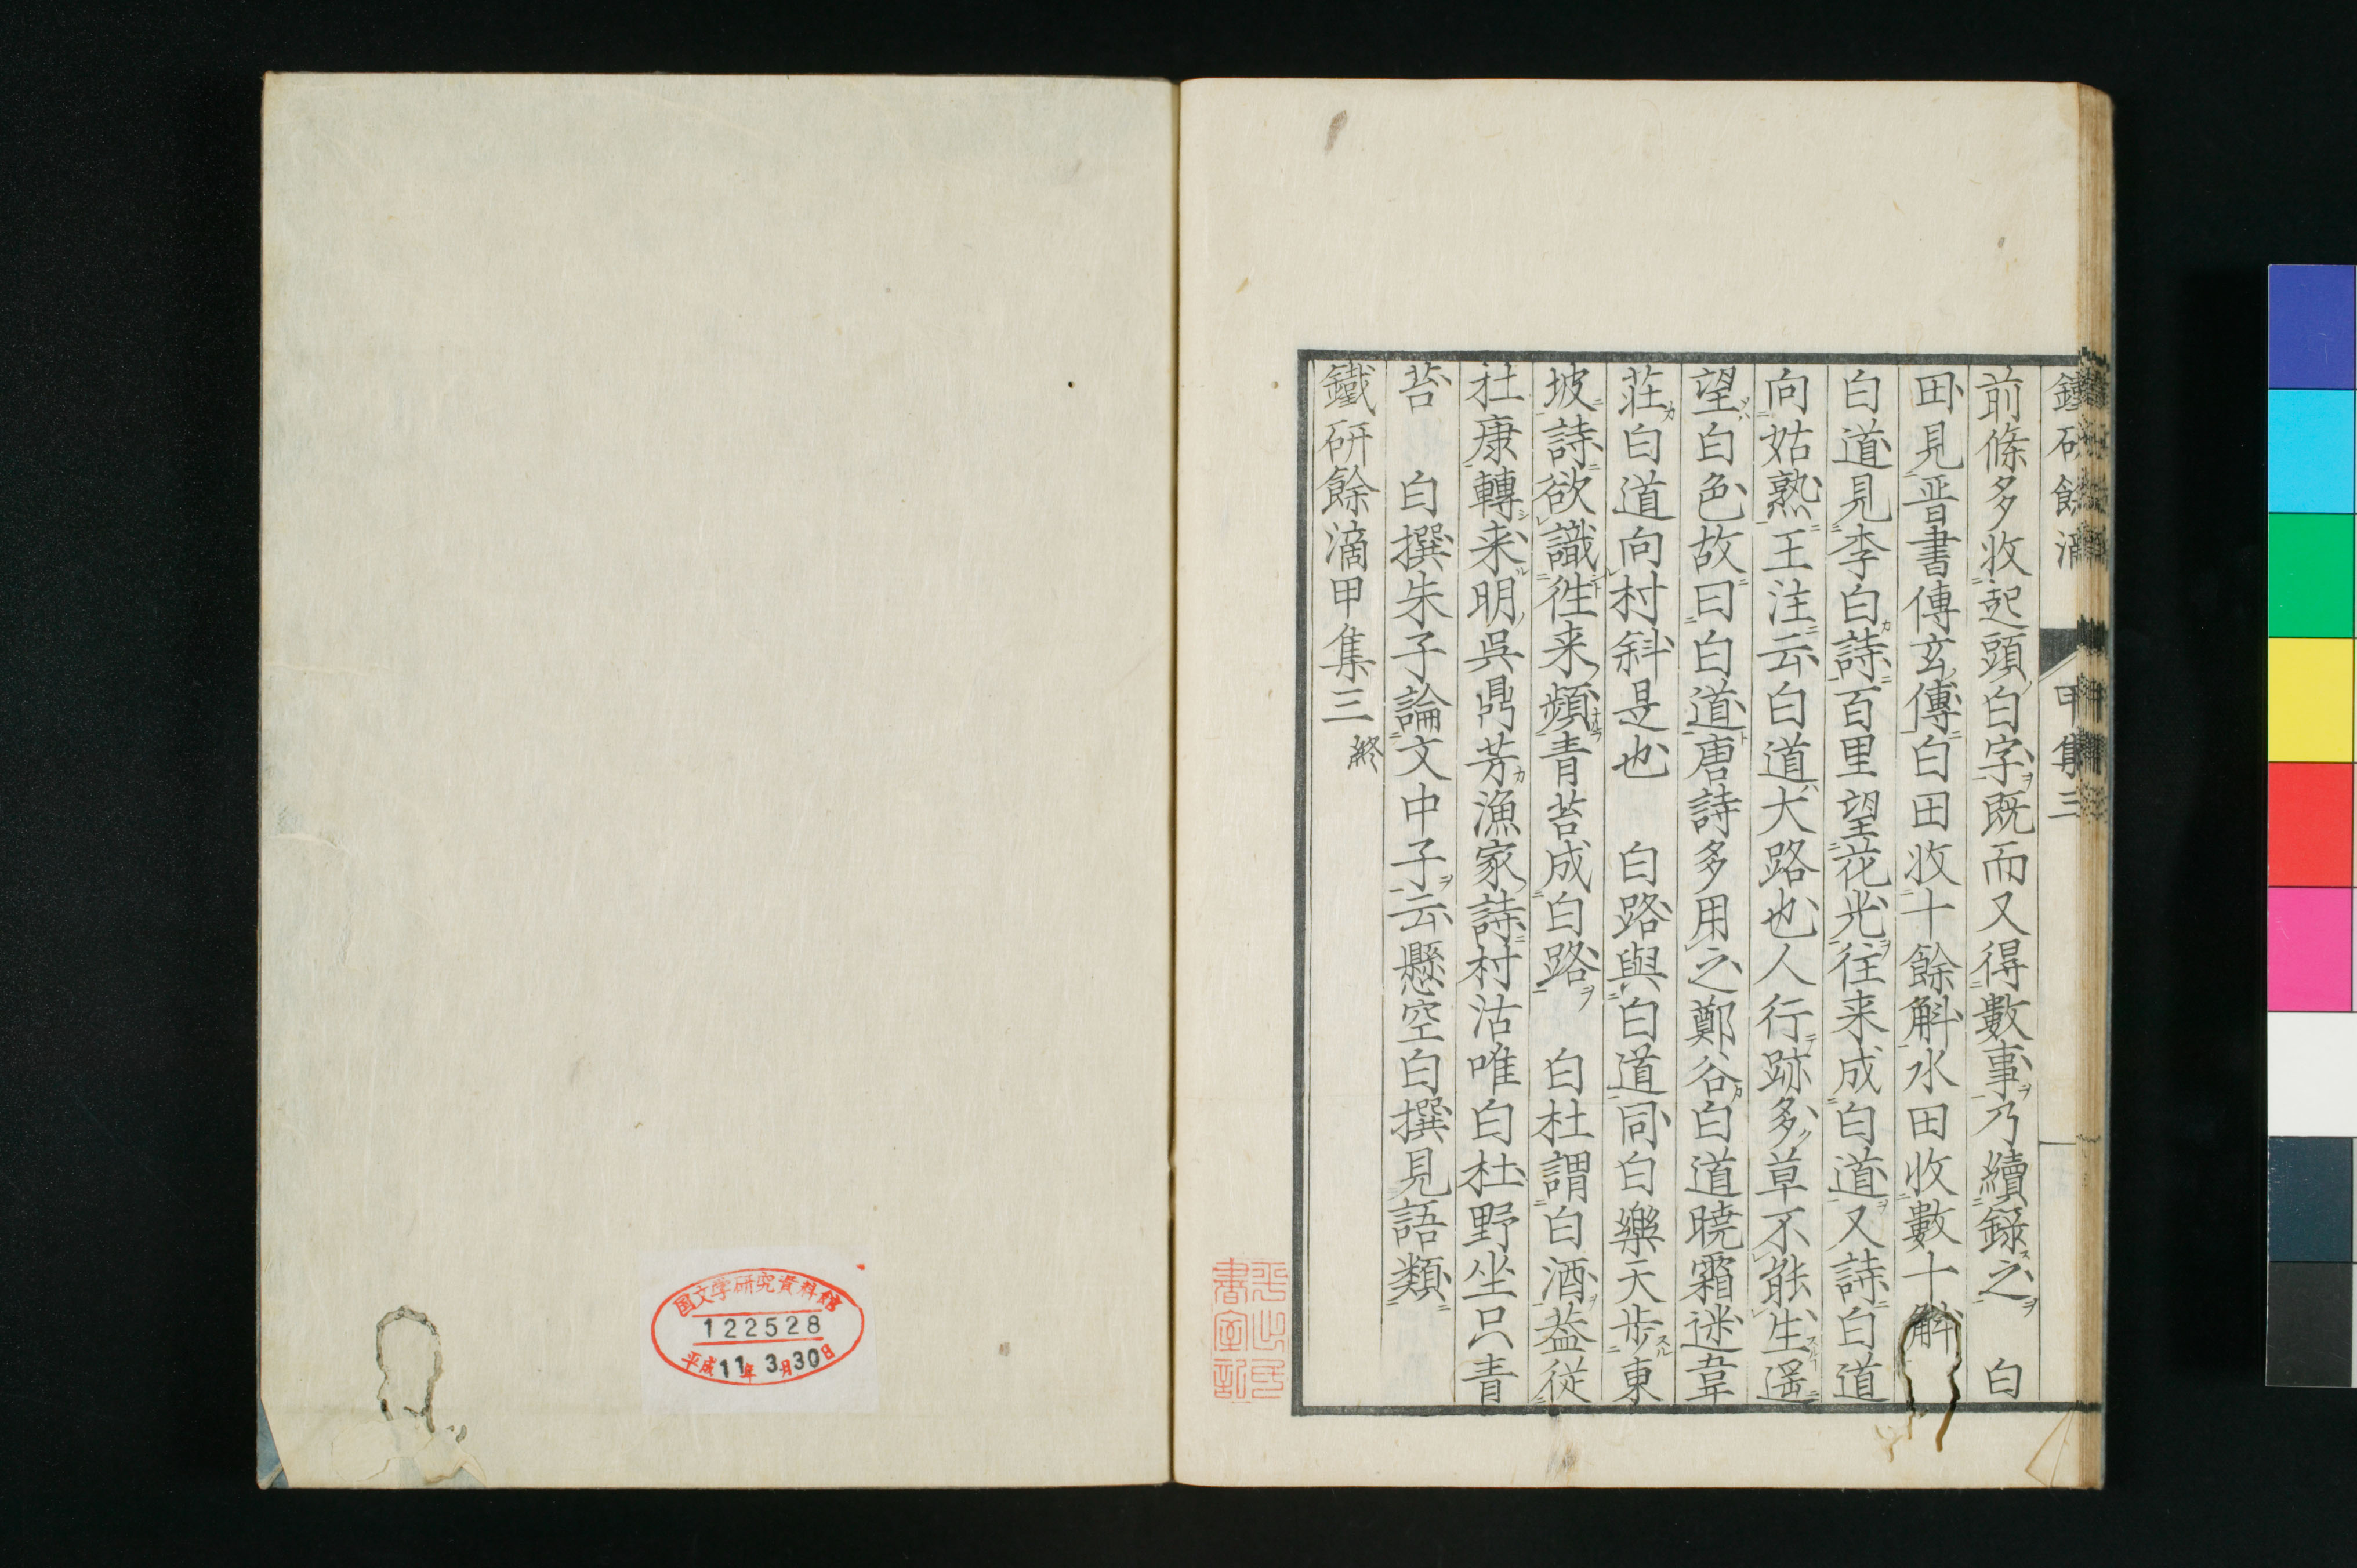 前條多收起頭白字既而又得數事乃續錄之　白
田見晋書傳玄傳白田收十餘斛水田收數十斛
白道見李白詩百里望花光往来成白道又詩白道
向姑熟王注云白道大路也人行跡多草不能生遥
望白色故曰白道唐詩多用之鄭谷白道曉霜迷韋
莊白道向村斜是也　白路與白道同白樂天歩東
坡詩欲識徃来頻青苔成白路　白杜謂白酒葢従
杜康轉来明吳鼎芳漁家詩村沽唯白杜野坐只青
苔　白撰朱子論文中子云懸空白撰見語類
鐵研餘滴甲集三終
甲集三
国文学研究資料館
122528
平成11年3月30日